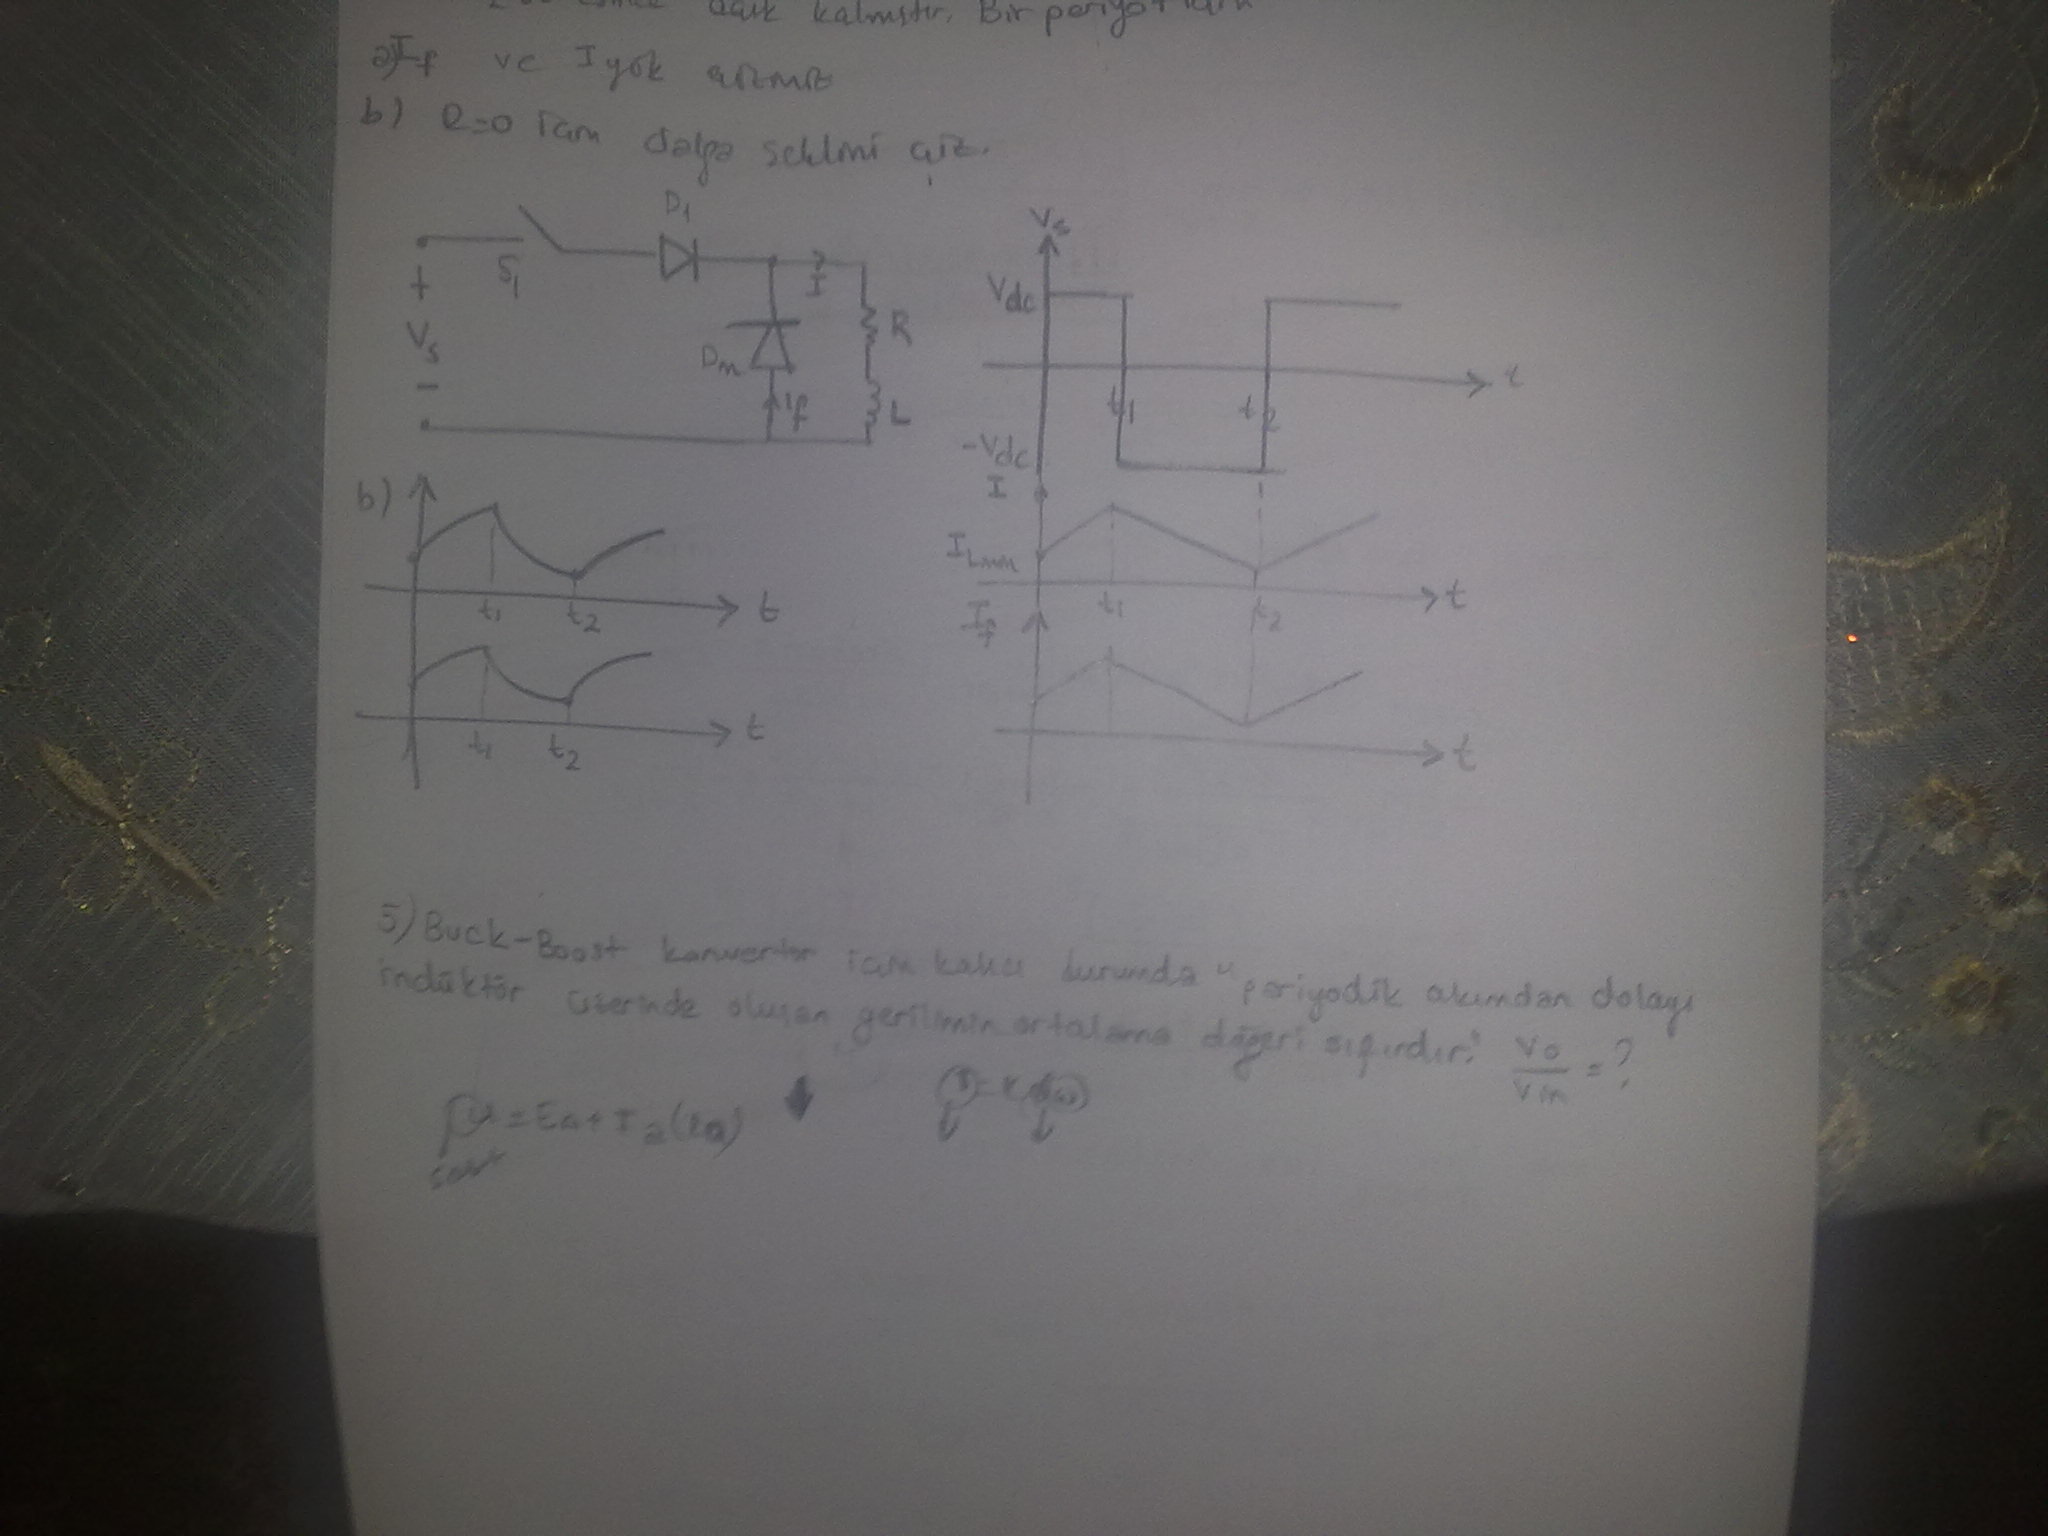 açık kalmıştır. Bir periyot için
a) If ve I yük çizmiz
b) R=0 için dalga şeklini çiz.
D1
S1
I
+
Vs
-
Dm
If
R
L
Vs
Vdc
t
t1
t2
-Vdc
b)
t1
t2
t
t1
t2
t
I
ILmin
t1
t2
t
If
t
5) Buck-Boost konvertör için kalıcı durumda "periyodik akımdan dolayı
indüktör üzerinde oluşan gerilimin ortalama değeri sıfırdır." Vo/Vin = ?